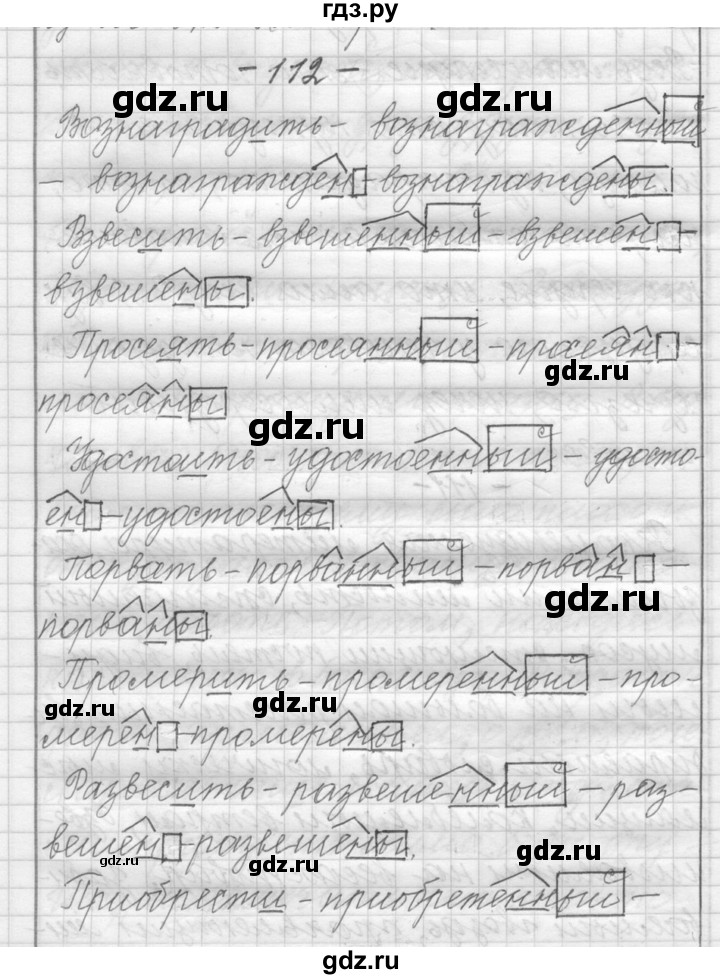 гдз.ру
- 112 -
gdz.ru gdz.ru
Вознаградить - вознагражденный
- вознагражден - вознаграждены.
gdz.ru gdz.ru
Взвесить - взвешенный - взвешен -
взвешены.
Просеять - просеянный - просеян -
gdz.ru
просеяны
gdz.ru
Удостоить - удостоенный - удосто-
ен - удостоены.
Порвать - порванный - порван -
gdz.ru
порваны.
Промерить - промеренный - про-
gdz.ru gdz.ru
мерен - промерены.
Развесить - развешенный - раз-
вешен - развешены.
gdz.ru gdz.ru gdz.ru
Приобрести - приобретенный -
gdz.ru gdz.ru